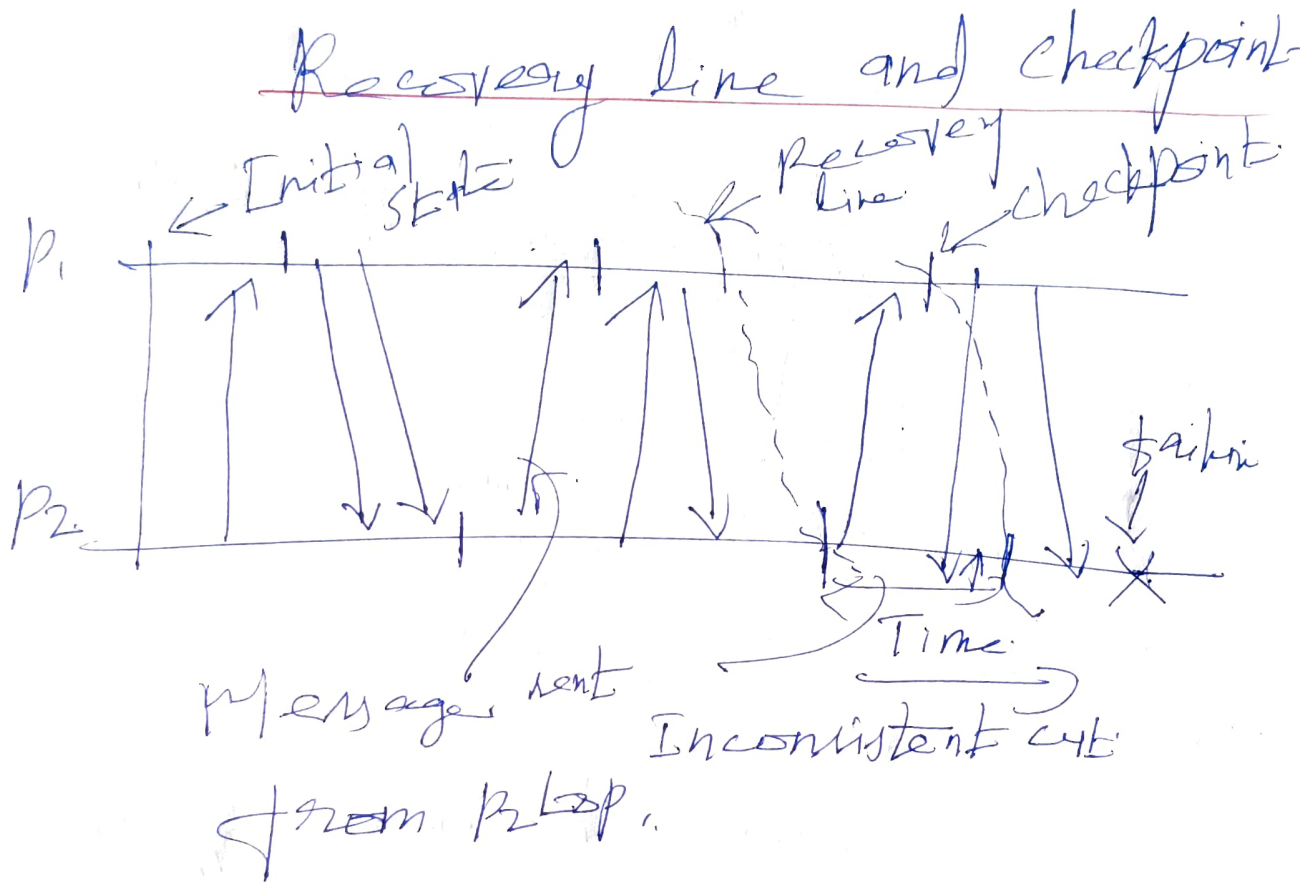 Recovery line and checkpoint
Initial
state
Recovery
line
checkpoint
P1
P2
Time
Message sent
from P2 to P1
Inconsistent cut